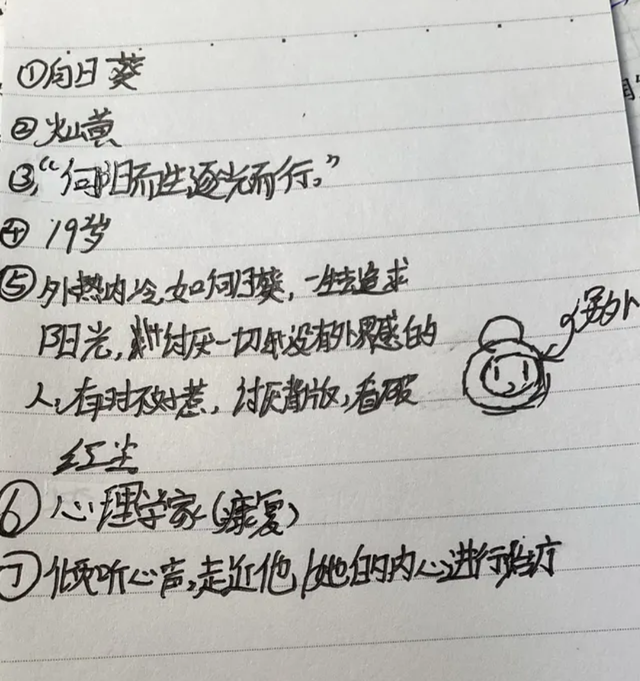 ①向日葵
②灿黄
③“向阳而生逐光而行。”
④ 19岁
⑤外热内冷,如向日葵,一生去追求
阳光,讨厌一切没有外界感的
人,有时不好惹,讨厌背版,看破
红尘
⑥心理学家(康复)
⑦倾听心声,走近他/她的内心进行治疗